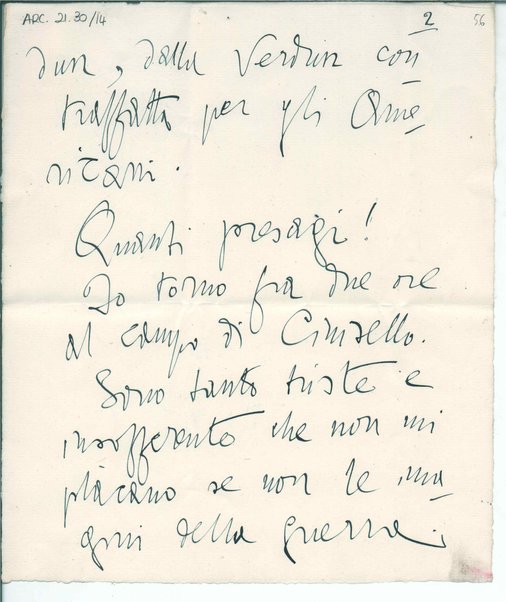 ARC. 21.30/14 2 56
dun, dalla Verdun con
traffatta per gli Ame
ricani.
Quanti presagi!
Io torno fra due ore
al campo di Cinisello.
Sono tanto triste e
insofferente che non mi
placano se non le ima
gini della guerra.